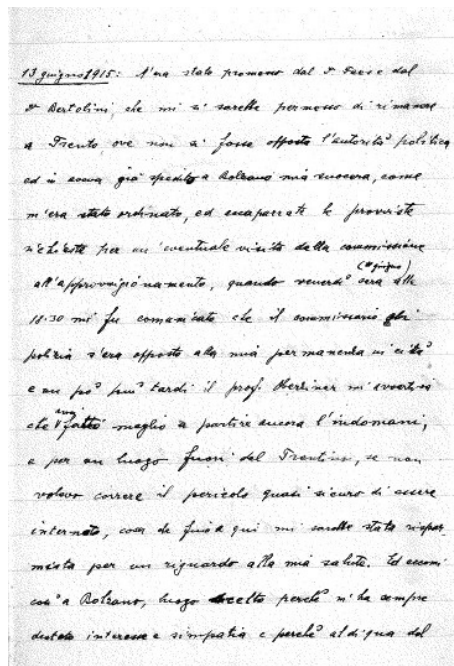 13 giugno 1915: M'era stato promesso dal Dr Pesce dal
Dr Bertolini, che mi si sarebbe permesso di rimanere
a Trento, ove non si fosse opposta l'autorità politica
ed io avevo già spedito a Bolzano mia suocera, come
m'era stato ordinato, ed incaparrate le provviste
richieste per un'eventuale visita della commissione
all'approvvigionamento, quando venerdì sera alle
(11 giugno)
18.30 mi fu comunicato che il commissario di
polizia s'era opposto alla mia permanenza in città
e un po' più tardi il prof. Berliner mi avvertiva
che avrei fatto meglio a partire ancora l'indomani,
e per un luogo fuori del Trentino, se non
volevo correre il pericolo quasi sicuro di essere
internato, cosa che fino a qui mi sarebbe stata rispar-
miata per un riguardo alla mia salute. Ed eccomi
così a Bolzano, luogo scelto perché m'ha sempre
destato interesse e simpatia e perché al di qua del